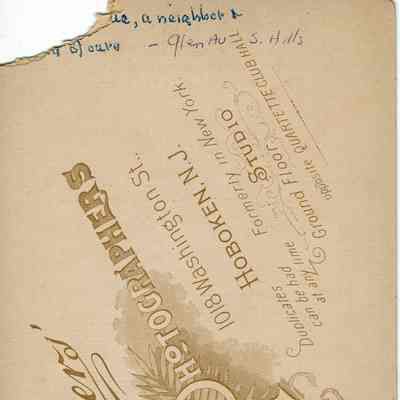 ue, a neighbor &
of ours - Glen Ave S. Hills
PHOTOGRAPHERS
1018 Washington St.,
HOBOKEN, N.J.
Formerly in New York.
STUDIO
Ground Floor.
opposite QUARTETTE CLUB HALL
Duplicates
can be had
at any time